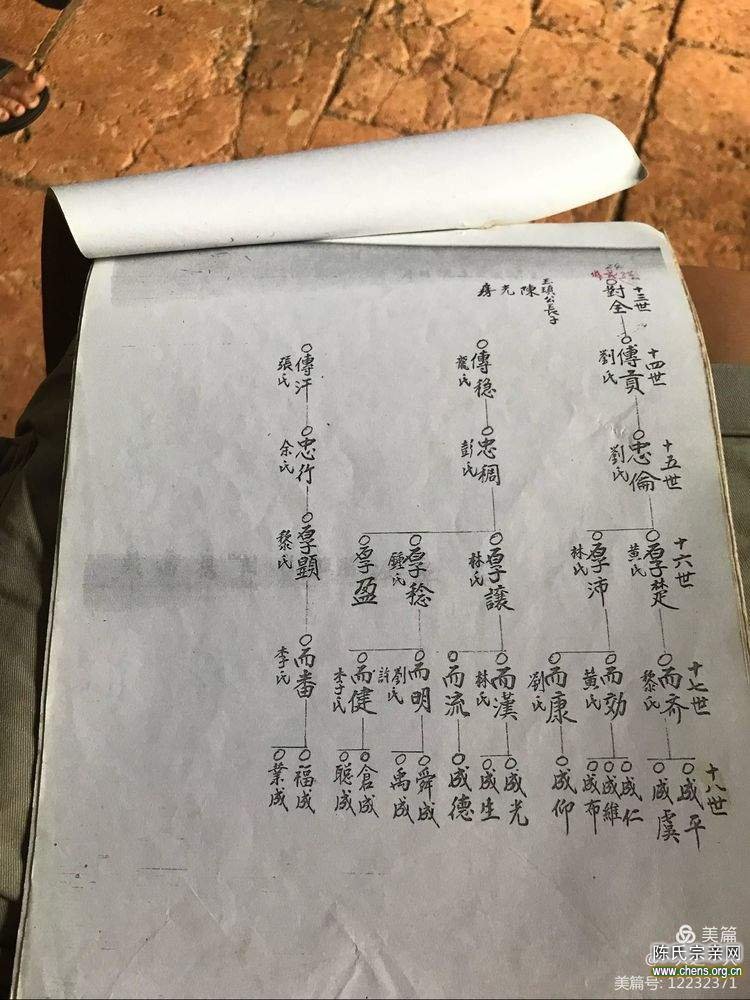 十三世
對全
玉瑱公長子
陳光房
十四世
傳貢
劉氏
傳稳
龍氏
傳汗
張氏
十五世
忠倫
劉氏
忠稠
彭氏
忠行
余氏
十六世
厚楚
黄氏
厚沛
林氏
厚讓
林氏
厚稔
鍾氏
厚盈
厚顕
黎氏
十七世
而齐
黎氏
而効
黄氏
而康
劉氏
而漢
林氏
而流
而明
劉氏
許
而健
李氏
而番
李氏
十八世
成平
成虞
成仁
成維
成布
成仰
成光
成生
成德
舜成
禹成
倉成
聪成
福成
業成
美篇
陈氏宗亲网
www.chens.org.cn
美篇号: 12232371